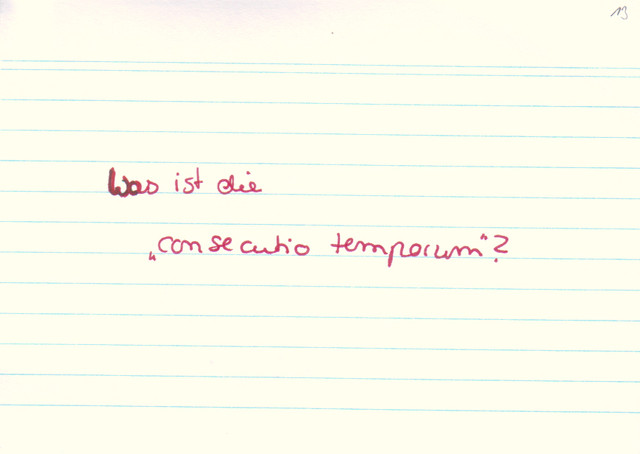 13
Was ist die
„consecutio temporum"?